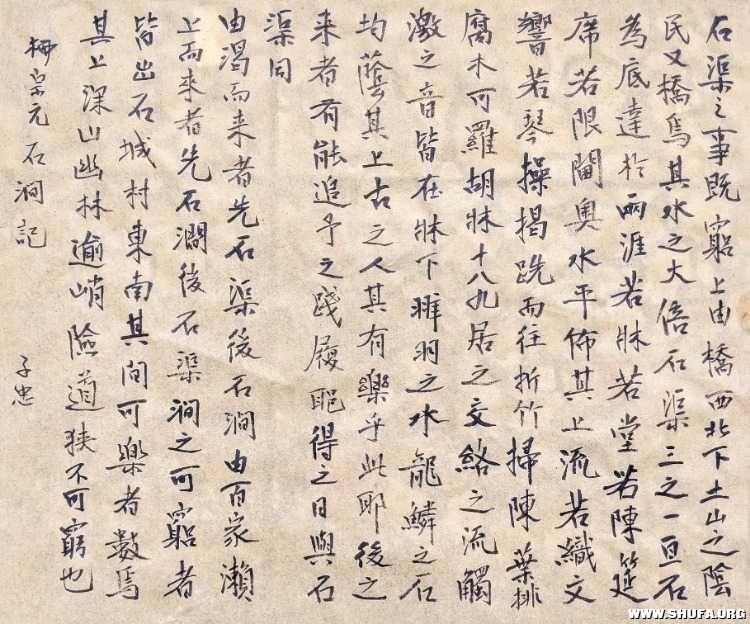 石渠之事既窮上由橋西北下土山之陰
民又橋焉其水之大倍石渠三之一亘石
為底達於兩涯若牀若堂若陳筵
席若限閫奧水平佈其上流若織文
響若琴操揭跣而往折竹掃陳葉排
腐木可羅胡牀十八九居之交絡之流觸
激之音皆在牀下羽之水龍鱗之石
均蔭其上古之人其有樂乎此耶後之
来者有能追予之踐履耶得之日與石
渠同
由渴而来者先石渠後石澗由百家瀨
上而來者先石澗後石渠澗之可窮者
皆出石城村東南其间可樂者數焉
其上深山幽林逾峭險道狹不可窮也
柳宗元石澗記
子忠
WWW.SHUFA.ORG